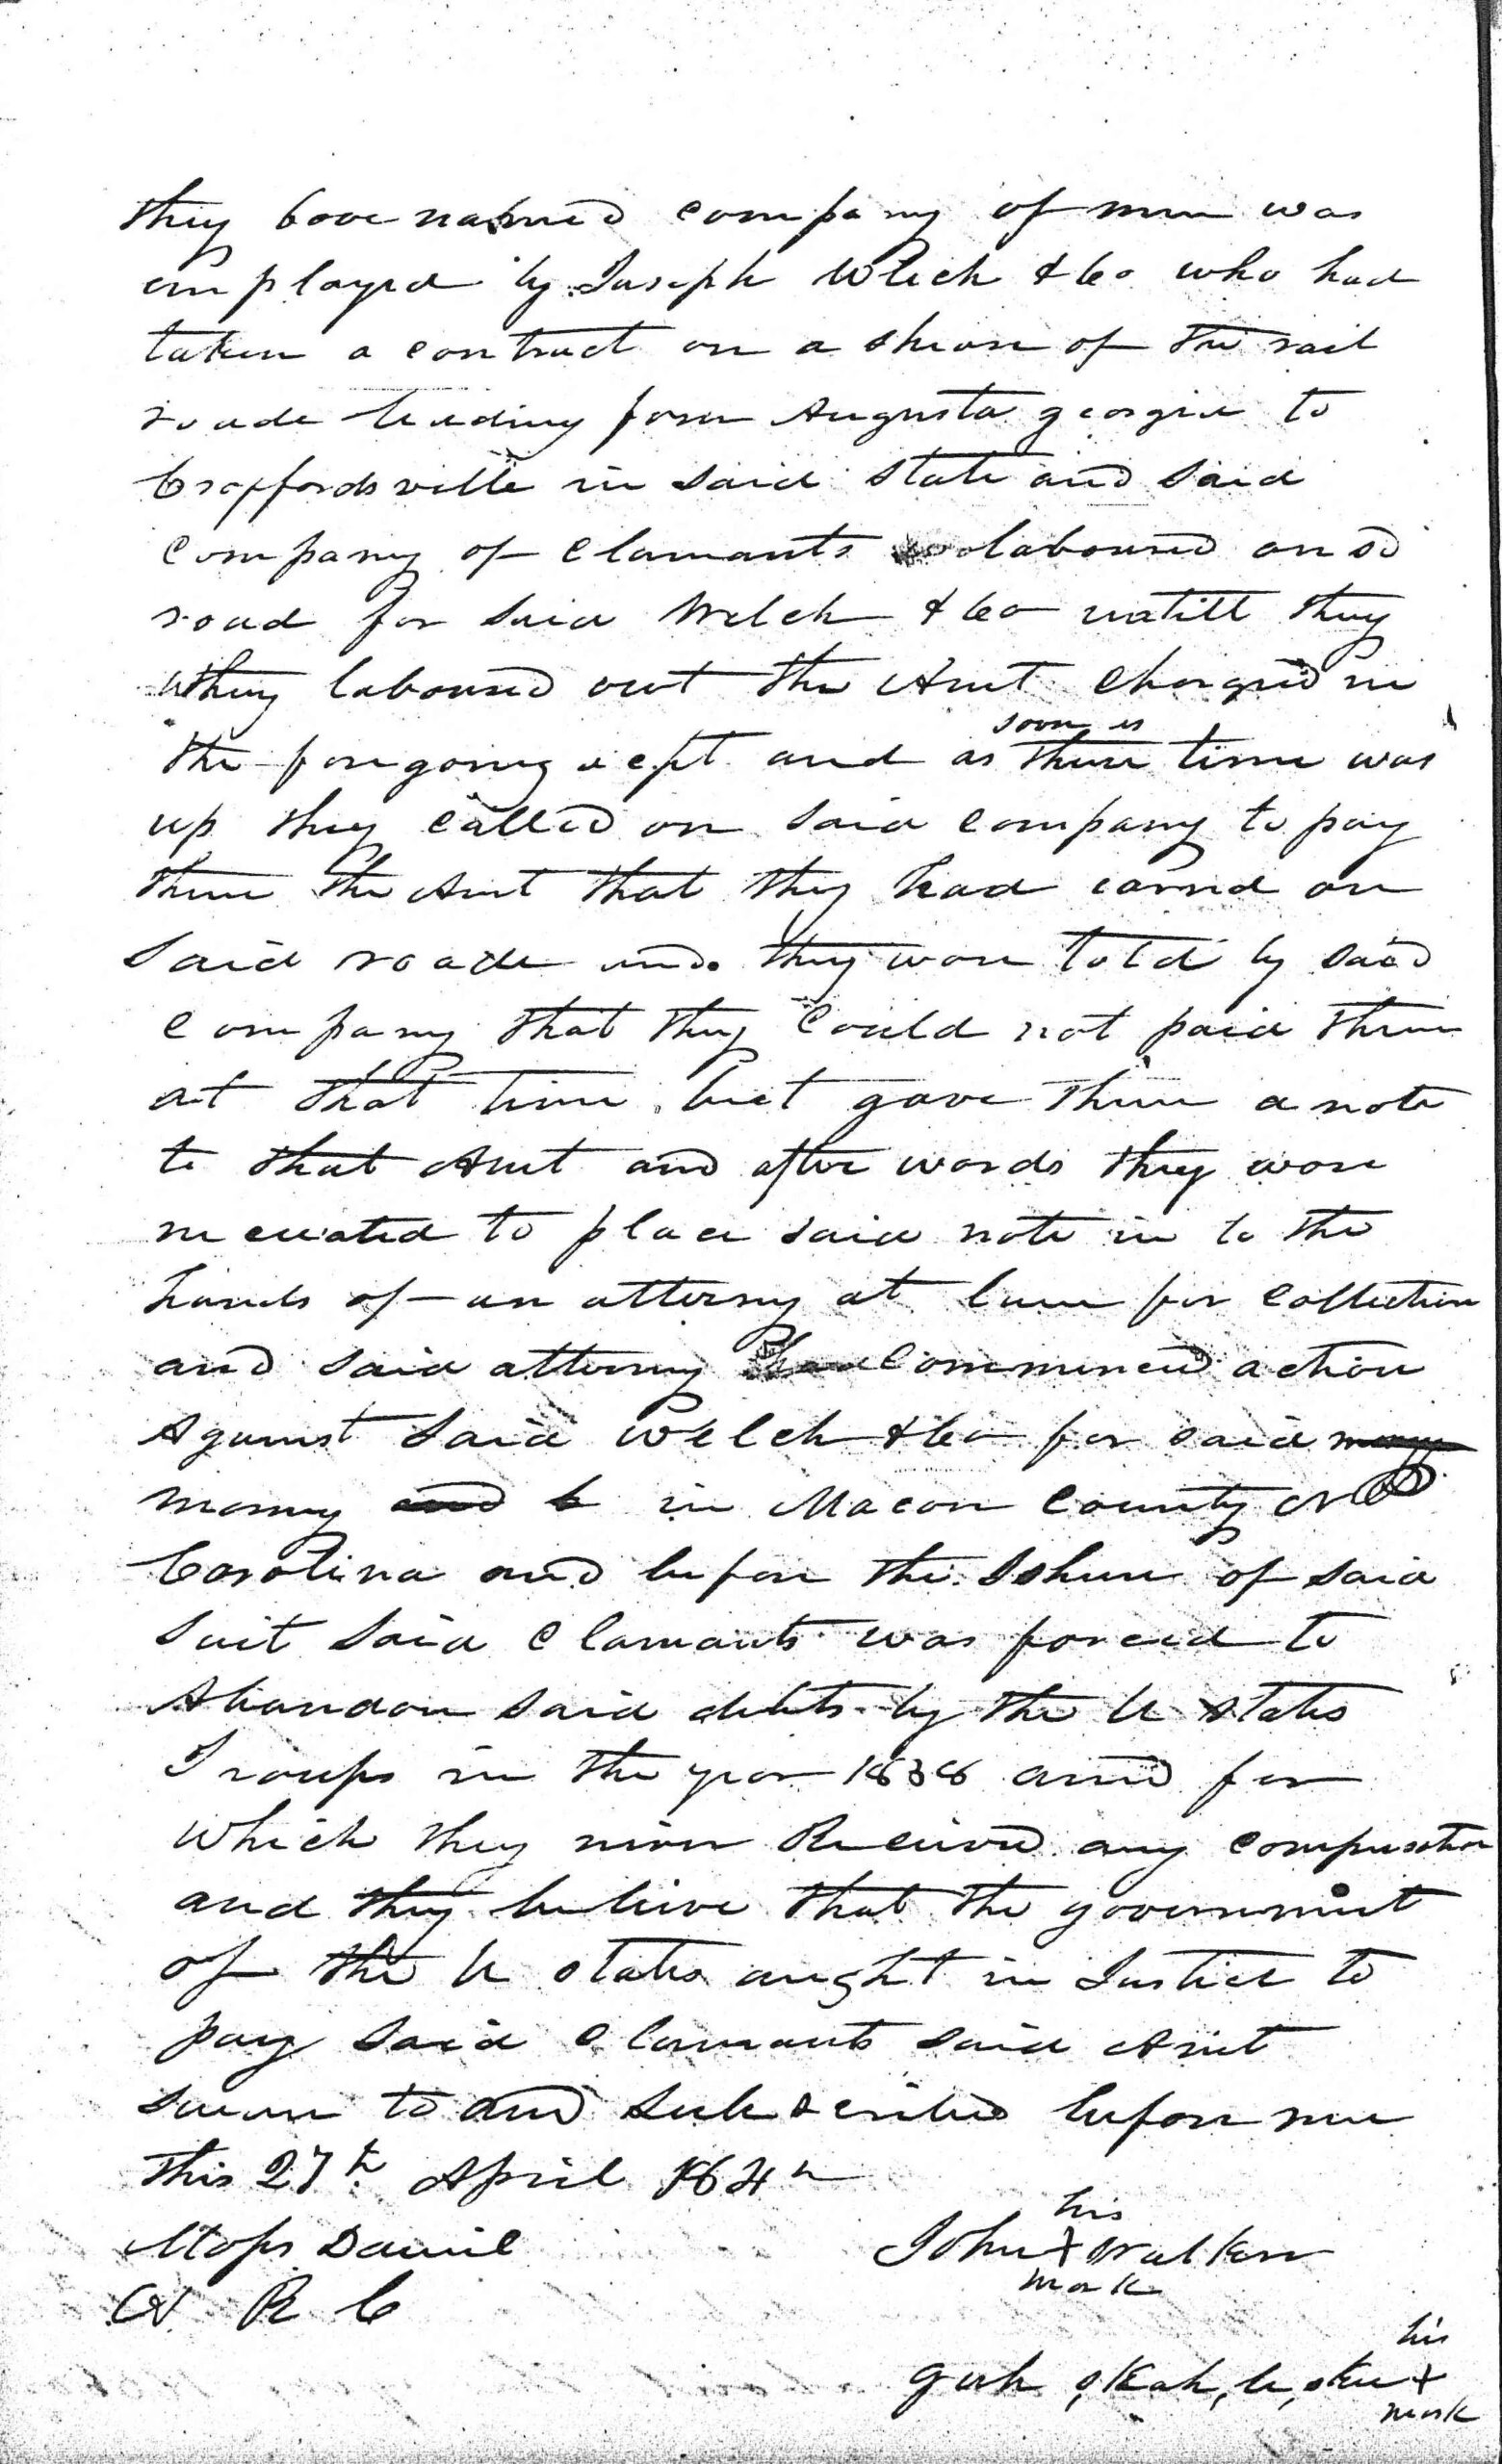 They bove named company of men was
employed by Joseph Welch & Co who had
taken a contract on a shear of the rail
roade leading form Augusta georgia to
Craffordsville in said state and said
company of clamants laboured on sd
road for said Welch & Co untill they
they laboured out the Amt charged in
the foregoing acpt and as soon as there time was
up they called on said company to pay
them the Amt that they had earnd on
said roade and they ware told by said
company that they could not paid them
at that time but gave them a note
to that Amt and after words they ware
to place said note in to the
hands of an attorny at law for collection
and said attorny commenced action
Against said Welch & Co for said money
money and in Macon County N
Carolina and before the Ishue of said
suit said clamants was forced to
Abandon said debts by the U States
Troops in the year 1838 and for
which they niver Received any
and they beleive that the government
of the U States aught in Justice to
pay said clamants said Amt
sworn to and subscribed before me
this 27th April 184
his
John X Walker
mark
Daniel
his
X
mark